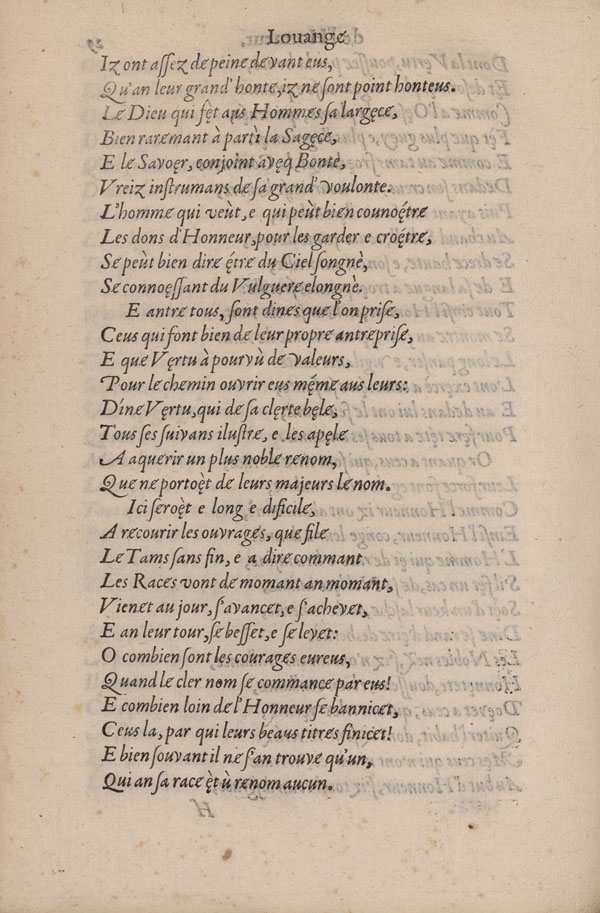 Louange
Iz ont assez de peine devant eus,
Qu'an leur grand' honte, iz ne sont point honteus.
Le Dieu qui fęt aus Hommes sa largęce,
Bien raremant à parti la Sagęce,
E le Savoęr, conjoint avęq Bonte,
Vreiz instrumans de sa grand' voulonte.
L'homme qui veùt, e qui peùt bien counoę́tre
Les dons d'Honneur, pour les garder e croę́tre,
Se peùt bien dire ę́tre du Ciel songnè,
Se connoęssant du Vulguere elongnè.
E antre tous, sont dines que l'on prise,
Ceus qui font bien de leur propre antreprise,
E que Vęrtu à pourvù de valeurs,
Pour le chemin ouvrir eus mę́me aus leurs:
Dine Vęrtu, qui de sa clęrte bęle,
Tous ses suivans ilustre, e les apęle
A aquerir un plus noble renom,
Que ne portoęt de leurs majeurs le nom.
Ici seroęt e long e dificile,
A recourir les ouvrages, que file
Le Tams sans fin, e a dire commant
Les Races vont de momant an momant,
Vienet au jour, s'avancet, e s'achevet,
E an leur tour, se besset, e se levet:
O combien sont les courages eureus,
Quand le cler nom se commance par eus!
E combien loin de l'Honneur se bannicet,
Ceus la, par qui leurs beaus titres finicet!
E bien souvant il ne s'an trouve qu'un,
Qui an sa race ęt ù renom aucun.